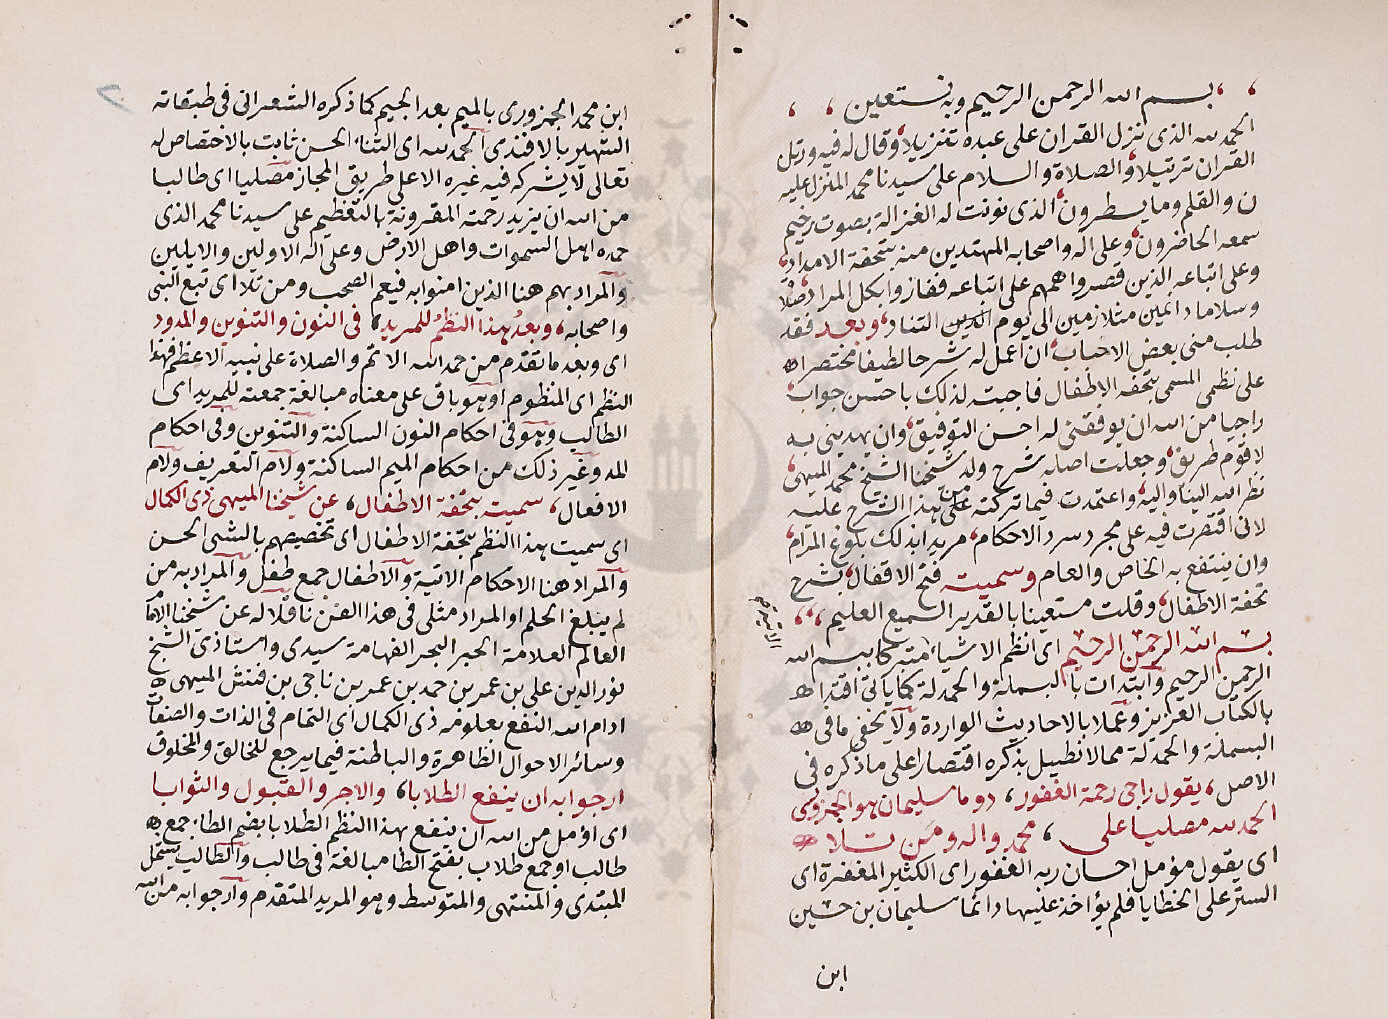 بسم الله الرحمن الرحيم وبه نستعين
الحمد لله الذى نزل القران على عبده تنزيلا وقال له فيه ورتل
القران ترتيلا والصلاة والسلام على سيدنا محمد المنزل عليه
ن والقلم وما يسطرون الذى نونت له الغزالة بصوت رخيم
سمعه الحاضرون وعلى اله واصحابه المهتدين منه بتحفة الامداد
وعلى اتباعه الذين قصروا هممهم على اتباعه ففازوا بكل المراد صلاة
وسلاما دائمين متلازمين الى يوم الدين التناد وبعد فقد
طلب منى بعض الاحباب ان اعمل له شرحا لطيفا مختصرا
على نظمى المسمى بتحفه الاطفال فاجبته لذلك باحسن جواب
راجيا من الله ان يوفقنى له احسن التوفيق وان يهدينى به
لاقوم طريق وجعلت اصله شرح ولد شيخنا الشيخ محمد الميهى
نظر الله الينا واليه واعتمدت فيما تركته من على هذا الشرح عليه
لانى اقتصرت فيه على مجرد سرد الاحكام مريدا بذلك بلوغ المرام
وان ينتفع به الخاص والعام وسميته فتح الاقفال بشرح
تحفة الاطفال وقلت مستعينا بالقدير السميع العليم
بسم الله الرحمن الرحيم اى انظم الاشياء متبركا ببسم الله
الاتية
الرحمن الرحيم وابتدات بالبسملة والحمدلة كما ياتى اقتدا
بالكتاب العزيز وعملا بالاحاديث الواردة ولا يخفى ما فى
البسملة والحمدلة مما لا نطيل بذكره اقتصارا على ما ذكره فى
الاصل يقول راجى رحمة الغفور، دوما سليمان هو الجمزورى
الحمد لله مصليا على ، محمد واله ومن تلا
اى يقول مؤمل احسان ربه الغفور اى الكثير المغفرة اى
الستر على الخطايا فلم يؤاخذ عليها دائما سليمان بن حسين
ابن
ابن محمد الجمزورى بالميم بعد الجيم كما ذكره الشعرانى فى طبقاته
الشهير بالافندى الحمد لله اى الثناء الحسن ثابت بالاختصاص له
تعالى لا يشركه فيه غيره الا على طريق المجاز مصليا اى طالبا
من الله ان يزيد رحمته المقرونة بالتعظيم على سيدنا محمد الذى
حمده اهل السموات واهل الارض وعلى اله الاولين والايلين
والمراد بهم هنا الذين امنوا به فيعم الصحب ومن تلا اى تبع النبى
واصحابه، وبعد هذا النظم للمريد، فى النون والتنوين والمدود
اى وبعد ما تقدم من حمد الله الاتم والصلاة على نبيه الاعظم فهذا
النظم اى المنظوم او هو باق على معناه مبالغة جمعته للمريد اى
الطالب وهو فى احكام النون الساكنة والتنوين وفى احكام
المد وغير ذلك من احكام الميم الساكنة ولام التعريف ولام
الافعال، سميته بتحفة الاطفال، عن شيخنا الميهى ذى الكمال
اى سميت هذا النظم بتحفة الاطفال اى تخصيصهم بالشئ الحسن
والمراد هنا الاحكام الاتية والاطفال جمع طفل والمراد به من
لم يبلغ الحلم او المراد مثلى فى هذا الفن ناقلا له عن شيخنا الامام
العالم العلامة الحبر البحر الفهامة سيدى واستاذى الشيخ
نور الدين على بن عمر بن حمد بن عمر بن ناجى بن فنيش الميهى
ادام الله النفع بعلومه ذى الكمال اى التمام فى الذات والصفات
وسائر الاحوال الظاهرة والباطنة فيما يرجع للخالق والمخلوق
ارجوا به ان ينفع الطلابا، والاجر والقبول والثوابا
اى اؤمل من الله ان ينفع بهذا النظم الطلابا بضم الطاء جمع
طالب او جمع طلاب بفتح الطا مبالغة فى طالب والطالب يشمل
المبتدى والمنتهى والمتوسط وهو المريد المتقدم وارجوا به من الله